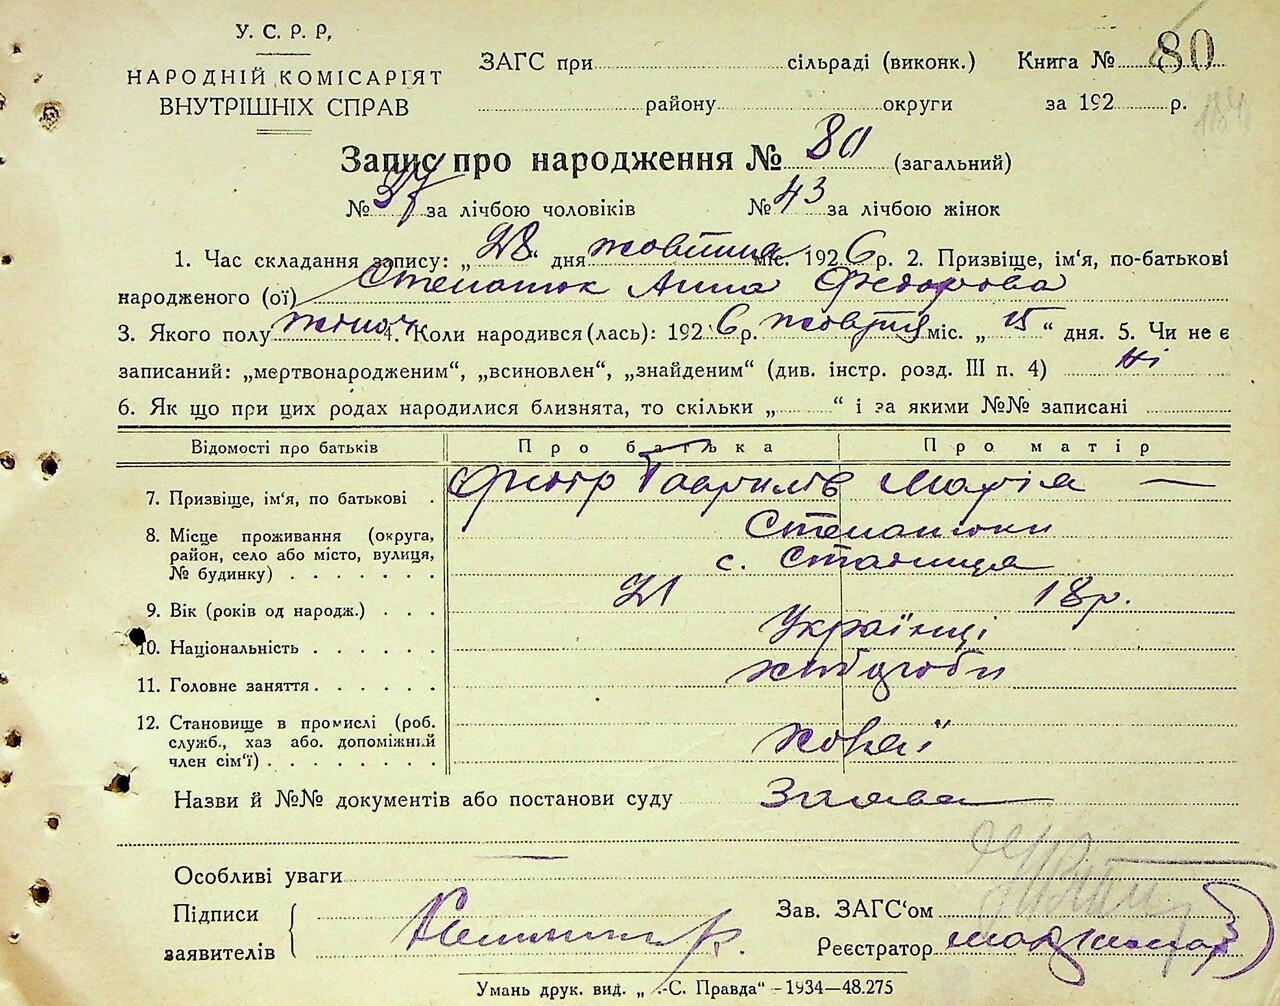 У. С. Р. Р,
НАРОДНІЙ КОМІСАРІЯТ
ВНУТРІШНІХ СПРАВ
ЗАГС при сільраді (виконк.) Книга № 80
району округи за 192 р.
184
Запис про народження № 80 (загальний)
№ 37 за лічбою чоловіків № 43 за лічбою жінок
1. Час складання запису: „28“ дня жовтня міс. 1926 р. 2. Призвіще, ім‘я, по-батькові
народженого (ої) Степанюк Анна Федорова
3. Якого полу жіноч 4. Коли народився (лась): 1926 р. жовтня міс. „15“ дня. 5. Чи не є
записаний: „мертвонародженим“, „всиновлен“, „знайденим“ (див. інстр. розд. III п. 4) Ні
6. Як що при цих родах народилися близнята, то скільки „ “ і за якими №№ записані
Відомості про батьків Про батька Про матір
7. Призвіще, ім‘я, по батькові . Гаврилів Марія —
8. Місце проживання (округа, Степанюки
район, село або місто, вулиця, с. Станиця
№ будинку) . . . . . . .
9. Вік (років од народж.) . . . 21 18 р.
10. Національність . . . . . . Українці
11. Головне заняття . . . . . . хліброби
12. Становище в промислі (роб.
служб., хаз або. допоміжний
член сім‘ї) . . . . . . . .
Назви й №№ документів або постанови суду Заява
Особливі уваги —
Підписи
заявителів
Зав. ЗАГС‘ом
Реєстратор
Умань друк. вид. „ .-С. Правда“ -1934—48.275